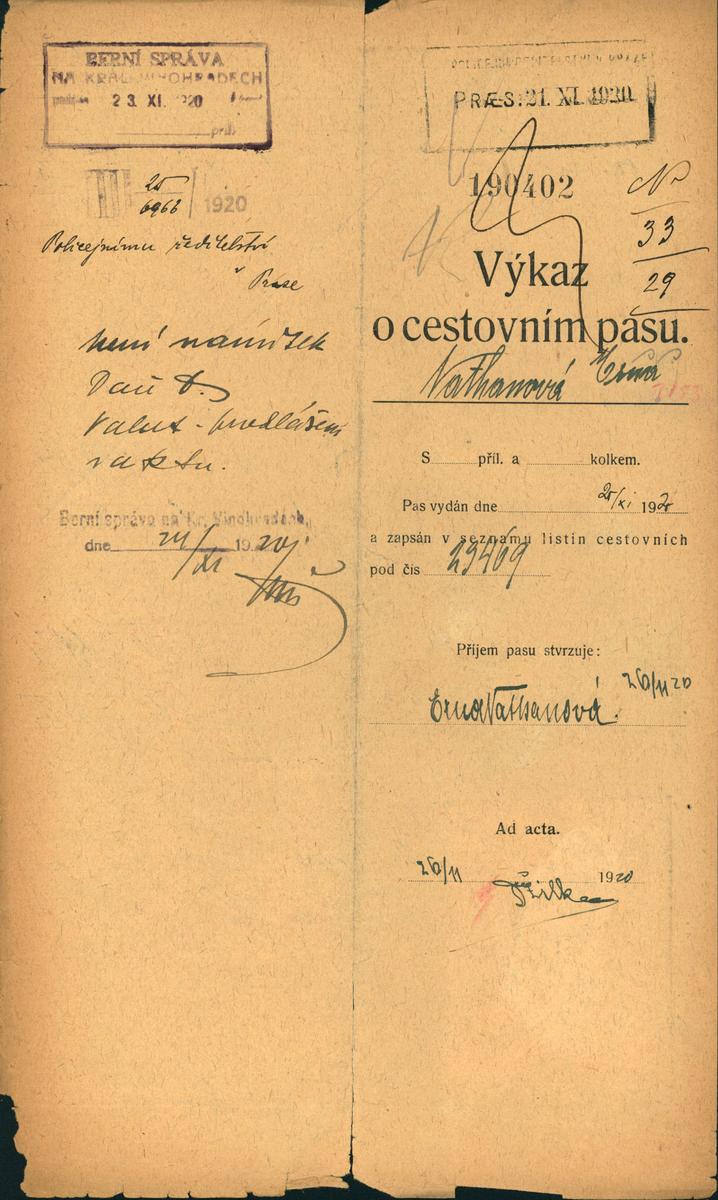 BERNÍ SPRÁVA
NA KRÁL. VINOHRADECH
23. XI. 1920
příl.
25
6966
1920
Policejnímu ředitelství
v Praze
není námitek
Daň
Valut - prohlášení
v aktu.
Berní správa na Kr. Vinohradech,
dne 24/XI 1920
POLICEJNÍ ŘEDITELSTVÍ V PRAZE
PRÆS: 21. XI. 1920
190402
N
33
29
Výkaz
o cestovním pasu.
Nathanová Erna
S příl. a kolkem.
Pas vydán dne 25/XI 1920
a zapsán v seznamu listin cestovních
pod čís 29469
Příjem pasu stvrzuje:
26/11 20
Erna Nathanová.
Ad acta.
26/11 1920